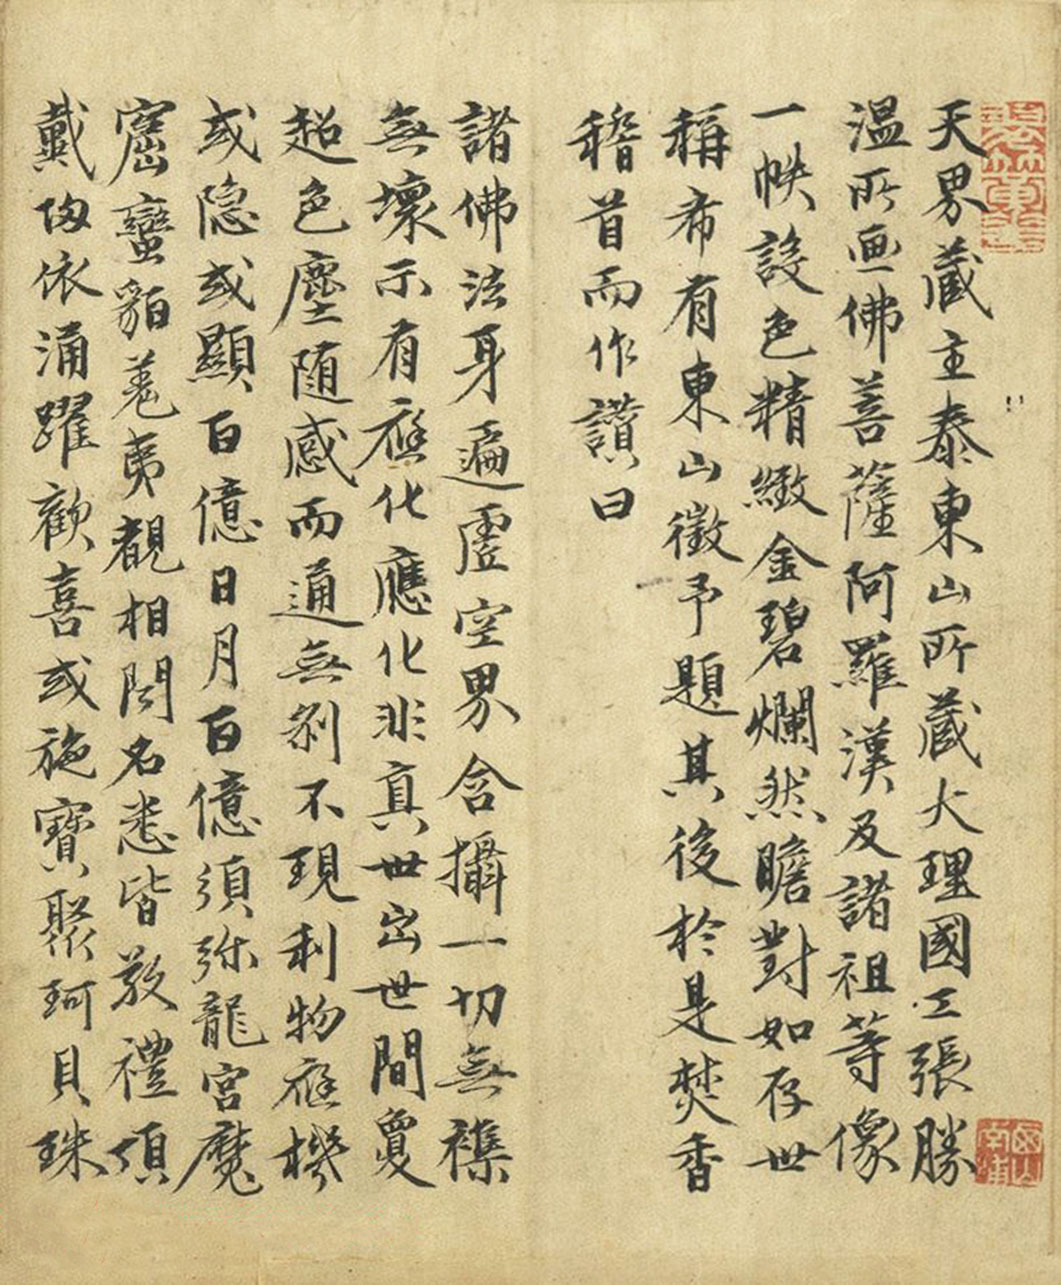 天界藏主泰東山所藏大理國工張勝
温所画佛菩薩阿羅漢及諸祖等像
一帙設色精緻金碧爛然瞻對如存世
稱希有東山徵予題其後於是焚香
稽首而作讚曰
諸佛法身遍虛空界含攝一切無襍
無壞示有應化應化非真世出世間夐
超色塵随感而通無刹不現利物應機
或隐或顯百億日月百億須弥龍宫魔
窟蠻貊羗夷覩相聞名悉皆敬禮頂
戴皈依涌躍歡喜或施寶聚珂貝珠